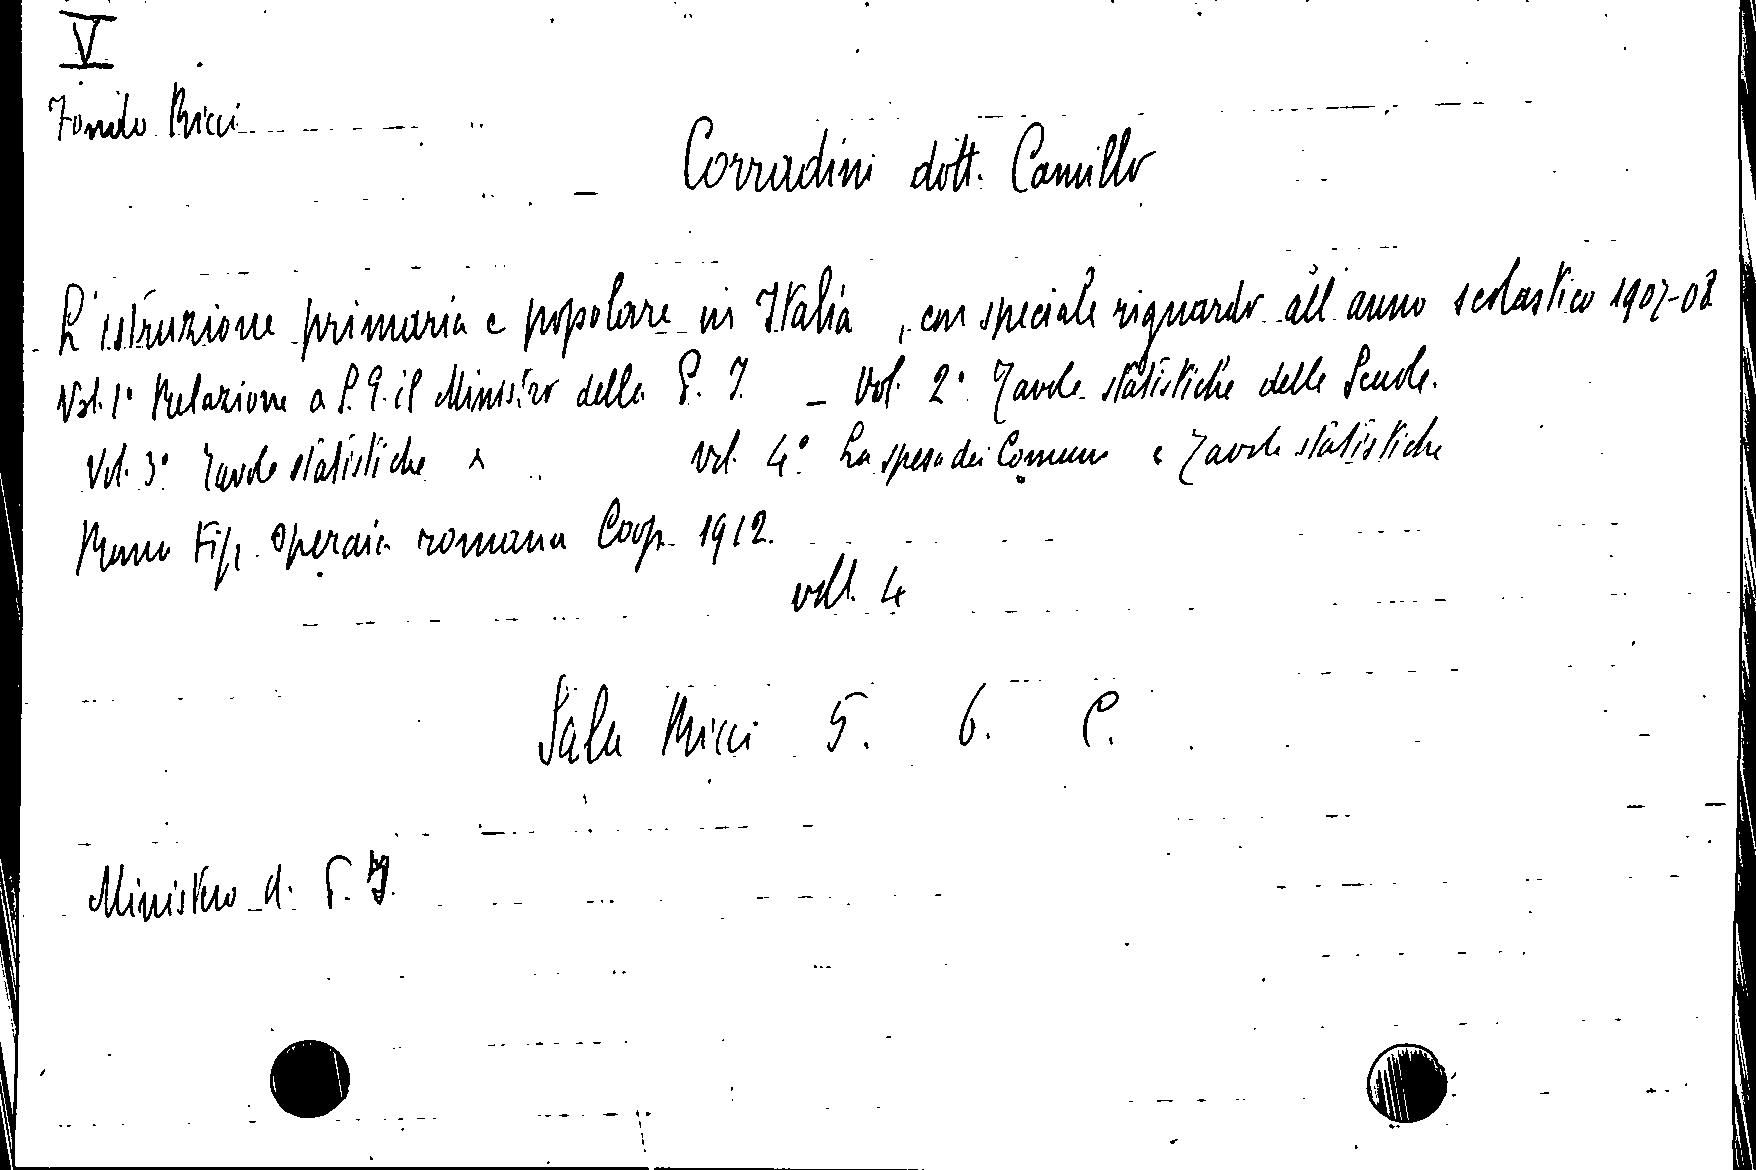 V
Fondo Ricci
Corradini dott. Camillo
L'istruzione primaria e popolare in Italia, con speciale riguardo all'anno scolastico 1907-08
Vol. 1° Relazione a S. E. il Ministro della P. I. - Vol. 2° Tavole statistiche delle Scuole.
Vol. 3° Tavole statistiche Vol. 4° La spesa dei Comuni e Tavole statistiche
Roma Tip. Operaia romana Coop. 1912.
voll. 4
Sala Ricci 5. 6. C.
Ministero d. P. I.